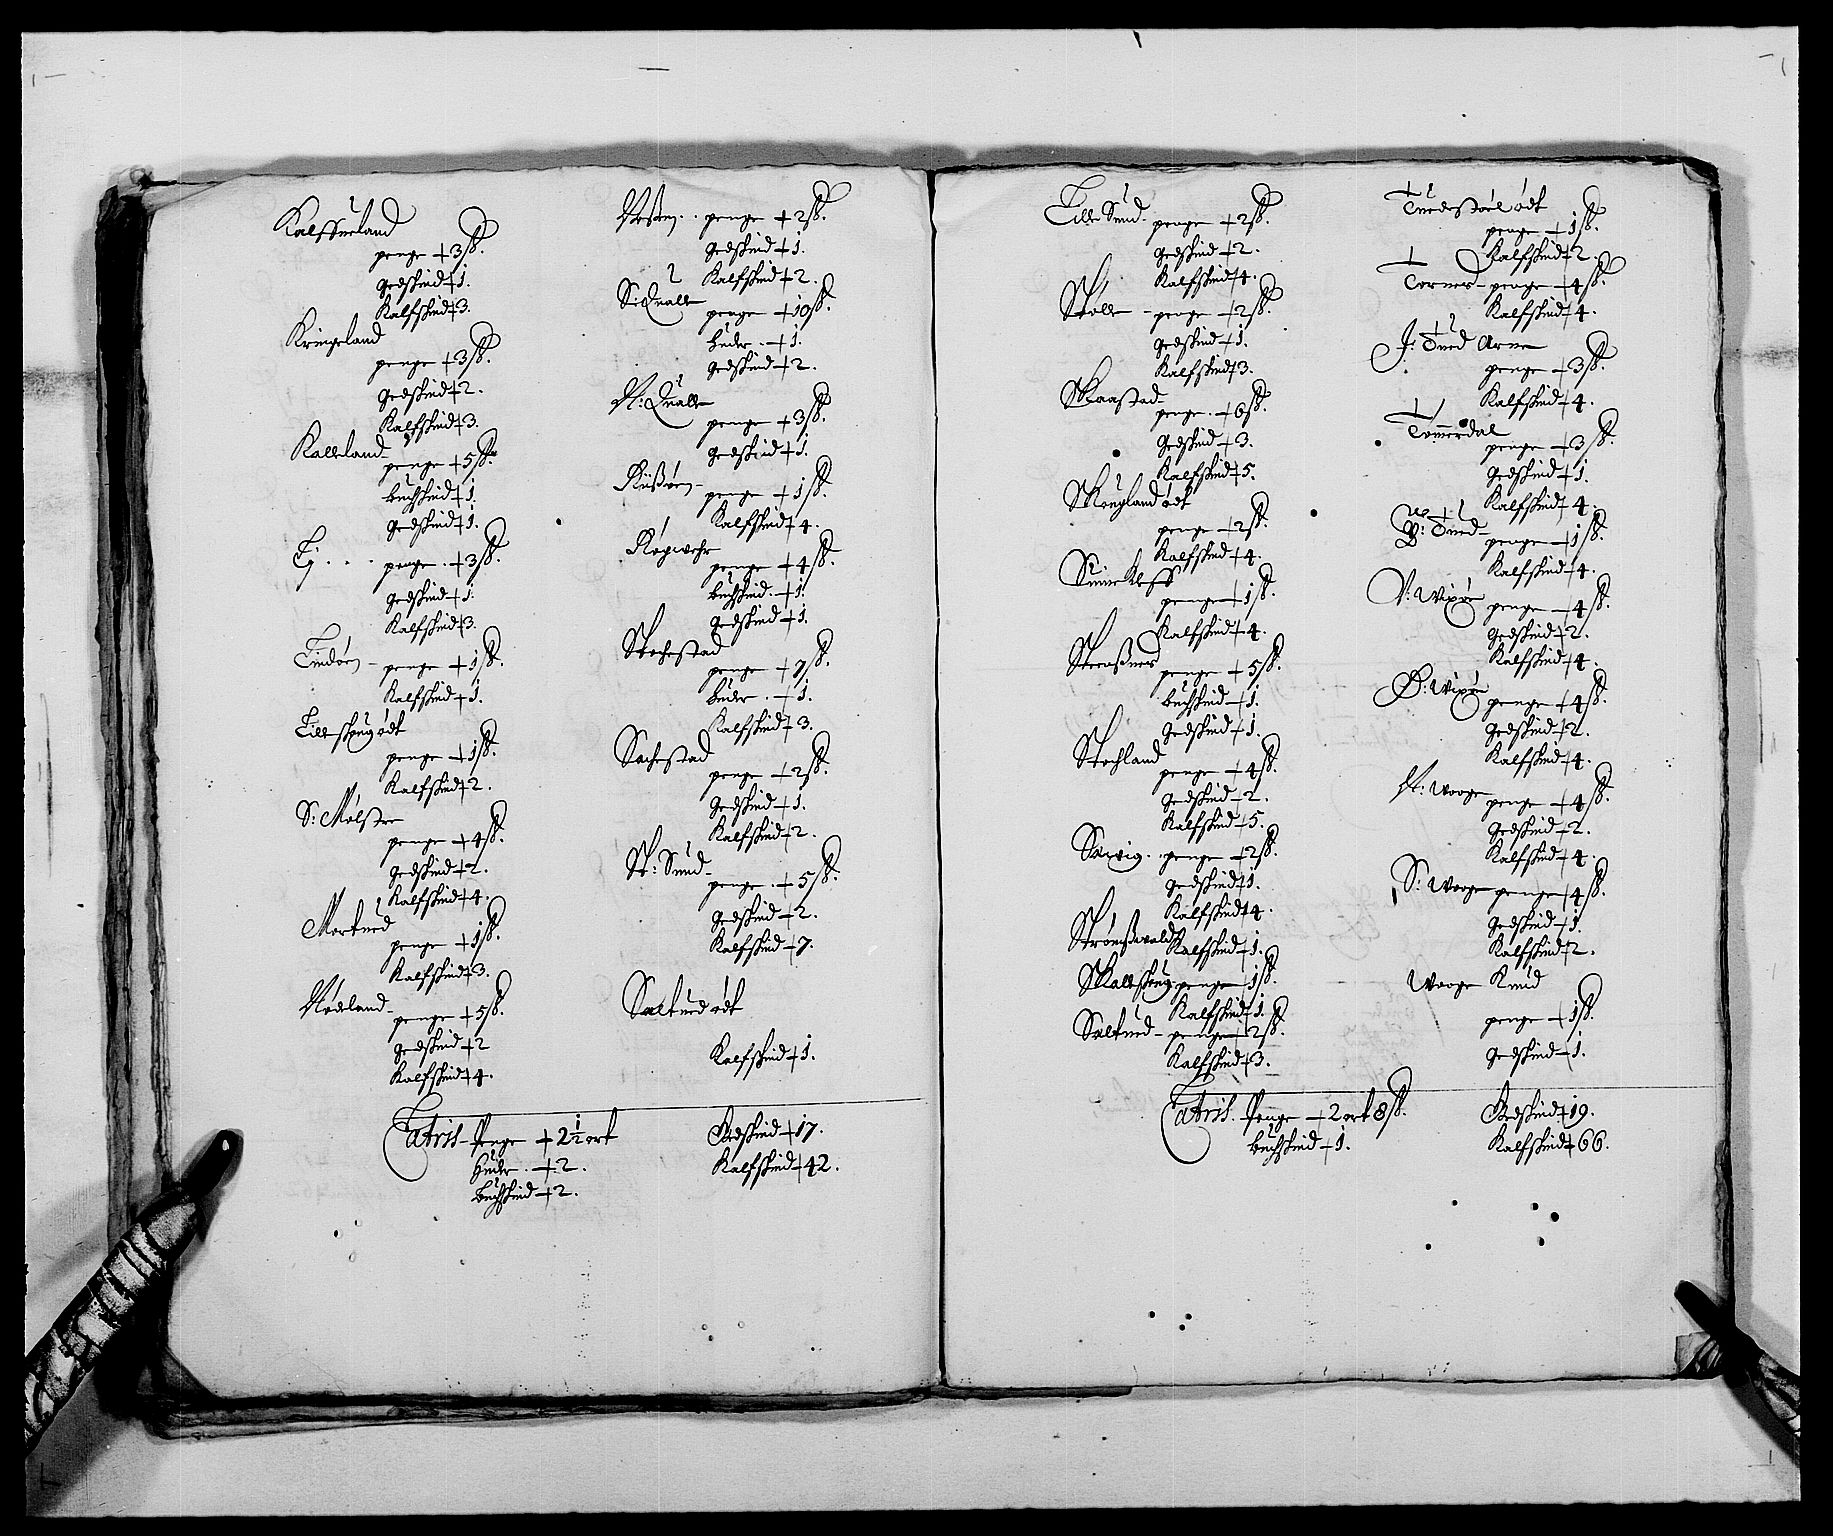 Kalffueland
penge + 3 ß.
Gedskind + 1.
Kalfskind + 3.
Kringeland
penge + 3 ß.
Gedskind + 2.
Kalfskind + 3.
Kalleland
penge + 5 ß.
buchskind + 1.
Gedskind + 1.
Ej . . . penge . + 3 ß.
Gedskind + 1.
Kalfskind + 3.
Lindøen - penge + 1 ß.
Kalfskind + 1.
Lille skoug ødt
penge + 1 ß.
Kalfskind + 2.
S: Mølster
penge + 4 ß.
Gedskind + 2.
Kalfskind + 4.
Mortued
penge + 1 ß.
Kalfskind + 3.
Nødeland -
penge + 5 ß.
Gedskind + 2
Kalfskind + 4.
Latris - Penge + 2 1/2 ort
Huder . + 2.
buchskind + 2.
penge + 2 ß.
Gedskind + 1.
Kalfskind + 2.
S: Qualle
penge + 10 ß.
huder . + 1.
Gedskind + 2.
N: Qualle
penge + 3 ß.
Gedskind + 1.
Riisøen -
penge + 1 ß.
Kalfskind + 4.
Røgwehr
penge + 4 ß.
buchskind . + 1.
Gedskind + 1.
Stochestad
penge + 7 ß.
huder . + 1.
Kalfskind + 3.
Sachestad
penge + 2 ß.
Gedskind + 1.
Kalfskind + 2.
St: Sund -
penge . + 5 ß.
Gedskind + 2.
Kalfskind + 7.
Saltued ødt
Kalfskind + 1.
Gedskind + 17.
Kalfskind + 42.
Lille Sund - penge + 2 ß.
Gedskind + 2.
Kalfskind + 4.
Stølle - penge + 2 ß.
Gedskind + 1.
Kalfskind + 3.
Skaastad
penge . + 6 ß.
Gedskind + 3.
Kalfskind + 5.
Skougland ødt
penge + 2 ß.
Kalfskind + 4.
penge + 1 ß.
Kalfskind + 4.
penge + 5 ß.
buchskind + 1.
Gedskind + 1.
Stochland
penge + 4 ß.
Gedskind + 2.
Kalfskind + 5.
Særvig . penge + 2 ß.
Gedskind + 1.
Kalfskind + 4.
Strømsvald Kalfskind + 1.
Skalleskoug penge + 1 ß.
Kalfskind + 1.
Saltued - penge + 2 ß.
Kalfskind + 3.
Latris. Penge + 2 ort 8 ß.
buchskind + 1.
Tuedstøel ødt
penge + 1 ß.
Kalfskind + 2.
Torner - penge + 4 ß.
Kalfskind + 4.
J: Tued Arne
penge + 3 ß.
Kalfskind + 4.
Tømerdal
penge + 3 ß.
Gedskind + 1.
Kalfskind + 4.
W: Tued -
penge + 1 ß.
Kalfskind + 4.
N: Wixøe penge + 4 ß.
Gedskind + 2.
Kalfskind + 4.
Ø: Wixøe
penge + 4 ß.
Gedskind + 2.
Kalfskind + 4.
N: Wooge
penge + 4 ß.
Gedskind + 2.
Kalfskind + 4.
S: Wooge penge + 4 ß.
Gedskind + 1.
Kalfskind + 2.
Wooge Knud
penge + 1 ß.
Gedskind + 1.
Gedskind + 19.
Kalfskind + 66.